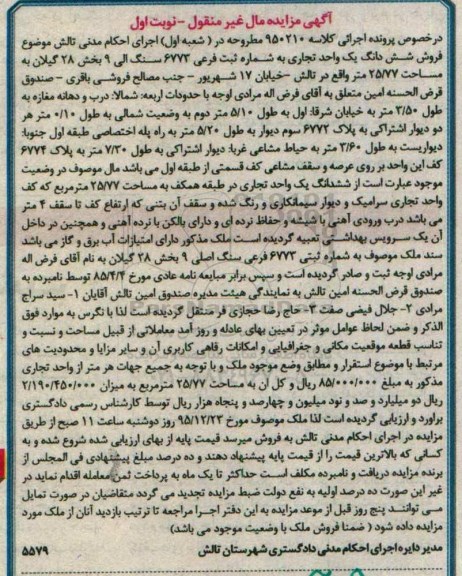 آگهی مزایده مال غیر منقول - نوبت اول
درخصوص پرونده اجرائی کلاسه ۹۵۰۲۱۰ مطروحه در ( شعبه اول) اجرای احکام مدنی تالش موضوع
فروش شش دانگ یک واحد تجاری به شماره ثبت فرعی ۶۷۷۳ سنگ الی ۹ بخش ۲۸ گیلان به
مساحت ۲۵/۷۷ متر واقع در تالش -خیابان ۱۷ شهریور - جنب مصالح فروشی باقری - صندوق
قرض الحسنه امین متعلق به آقای فرض اله مرادی اوجه با حدودات اربعه: شمالا: درب و دهانه مغازه به
طول ۳/۵۰ متر به خیابان شرقا: اول به طول ۵/۱۰ متر دوم به وضعیت شمالی به طول ۰/۱۰ متر هر
دو دیوار اشتراکی به پلاک ۶۷۷۲ سوم دیوار به طول ۵/۲۰ متر به راه پله اختصاصی طبقه اول جنوبا:
دیواریست به طول ۳/۶۰ متر به حیاط مشاعی غربا: دیوار اشتراکی به طول ۷/۳۰ متر به پلاک ۶۷۷۴
کف این واحد بر روی عرصه و سقف مشاعی کف قسمتی از طبقه اول می باشد مال موصوف در وضعیت
موجود عبارت است از ششدانگ یک واحد تجاری در طبقه همکف به مساحت ۲۵/۷۷ مترمربع که کف
واحد تجاری سرامیک و دیوار سیمانکاری و رنگ شده و سقف آن بتنی که ارتفاع کف تا سقف ۴ متر
می باشد درب ورودی آهنی با شیشه و حفاظ نرده ای و دارای بالکن با نرده آهنی و همچنین در داخل
آن یک سرویس بهداشتی تعبیه گردیده است ملک مذکور دارای امتیازات آب برق و گاز می باشد
سند ملک موصوف به شماره ثبتی ۶۷۷۳ فرعی سنگ اصلی ۹ بخش ۲۸ گیلان به نام آقای فرض اله
مرادی اوجه ثبت و صادر گردیده است و سپس برابر مبایعه نامه عادی مورخ ۸۵/۴/۴ توسط نامبرده به
صندوق قرض الحسنه امین تالش به نمایندگی هیئت مدیره صندوق امین تالش آقایان ۱- سید سراج
مرادی ۲- جلال فیضی صفت ۳- حاج رضا حجازی فر منتقل گردیده است لذا با نگرس به موارد فوق
الذکر و ضمن لحاظ عوامل موثر در تعیین بهای عادله و روز آمد معاملاتی از قبیل مساحت و نسبت و
تناسب قطعه موقعیت مکانی و جغرافیایی و امکانات رفاهی کاربری آن و سایر مزایا و محدودیت های
مرتبط با موضوع استقرار و مطابق وضع موجود ملک و با توجه به جمیع جهات هر متر از واحد تجاری
مذکور به مبلغ ۸۵/۰۰۰/۰۰۰ ریال و کل آن به مساحت ۲۵/۷۷ مترمربع به میزان ۲/۱۹۰/۴۵۰/۰۰۰
ریال دو میلیارد و صد و نود میلیون و چهارصد و پنجاه هزار ریال توسط کارشناس رسمی دادگستری
براورد و ارزیابی گردیده است لذا ملک موصوف مورخ ۹۵/۱۲/۲۳ روز دوشنبه ساعت ۱۱ صبح از طریق
مزایده در اجرای احکام مدنی تالش به فروش میرسد قیمت پایه از بهای ارزیابی شده شروع شده و به
کسانی که بالاترین قیمت را از قیمت پایه پیشنهاد دهند و ده درصد مبلغ پیشنهادی فی المجلس از
برنده مزایده دریافت و نامبرده مکلف است حداکثر تا یک ماه به پرداخت ثمن معامله اقدام نماید در
غیر این صورت ده درصد اولیه به نفع دولت ضبط مزایده تجدید می گردد متقاضیان در صورت تمایل
می توانند پنج روز قبل از موعد مزایده به این دفتر اجرا مراجعه تا ترتیب بازدید آنان از ملک مورد
مزایده داده شود ( ضمنا فروش ملک با وضعیت موجود می باشد)
مدیر دایره اجرای احکام مدنی دادگستری شهرستان تالش ۵۵۷۹